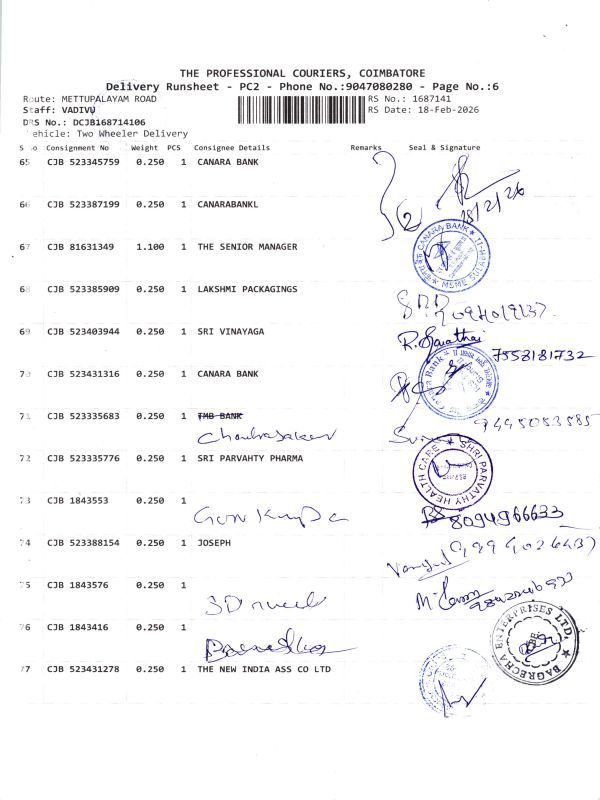 THE PROFESSIONAL COURIERS, COIMBATORE
Delivery Runsheet - PC2 - Phone No.:9047080280 - Page No.:6
Route: METTUPALAYAM ROAD
RS No.: 1687141
Staff: VADIVU
RS Date: 18-Feb-2026
DRS No.: DCJB168714106
Vehicle: Two Wheeler Delivery
S No Consignment No Weight PCS Consignee Details Remarks Seal & Signature
65 CJB 523345759 0.250 1 CANARA BANK
18/2/26
66 CJB 523387199 0.250 1 CANARABANKL
2
67 CJB 81631349 1.100 1 THE SENIOR MANAGER
CANARA BANK
68 CJB 523385909 0.250 1 LAKSHMI PACKAGINGS
69 CJB 523403944 0.250 1 SRI VINAYAGA
7558181732
70 CJB 523431316 0.250 1 CANARA BANK
Canara Bank
71 CJB 523335683 0.250 1 TMB BANK
72 CJB 523335776 0.250 1 SRI PARVAHTY PHARMA
SHRI PARVATHY HEALTH CARE
73 CJB 1843553 0.250 1
8094966633
74 CJB 523388154 0.250 1 JOSEPH
75 CJB 1843576 0.250 1
76 CJB 1843416 0.250 1
BAGRECHA ENTERPRISES LTD.
77 CJB 523431278 0.250 1 THE NEW INDIA ASS CO LTD